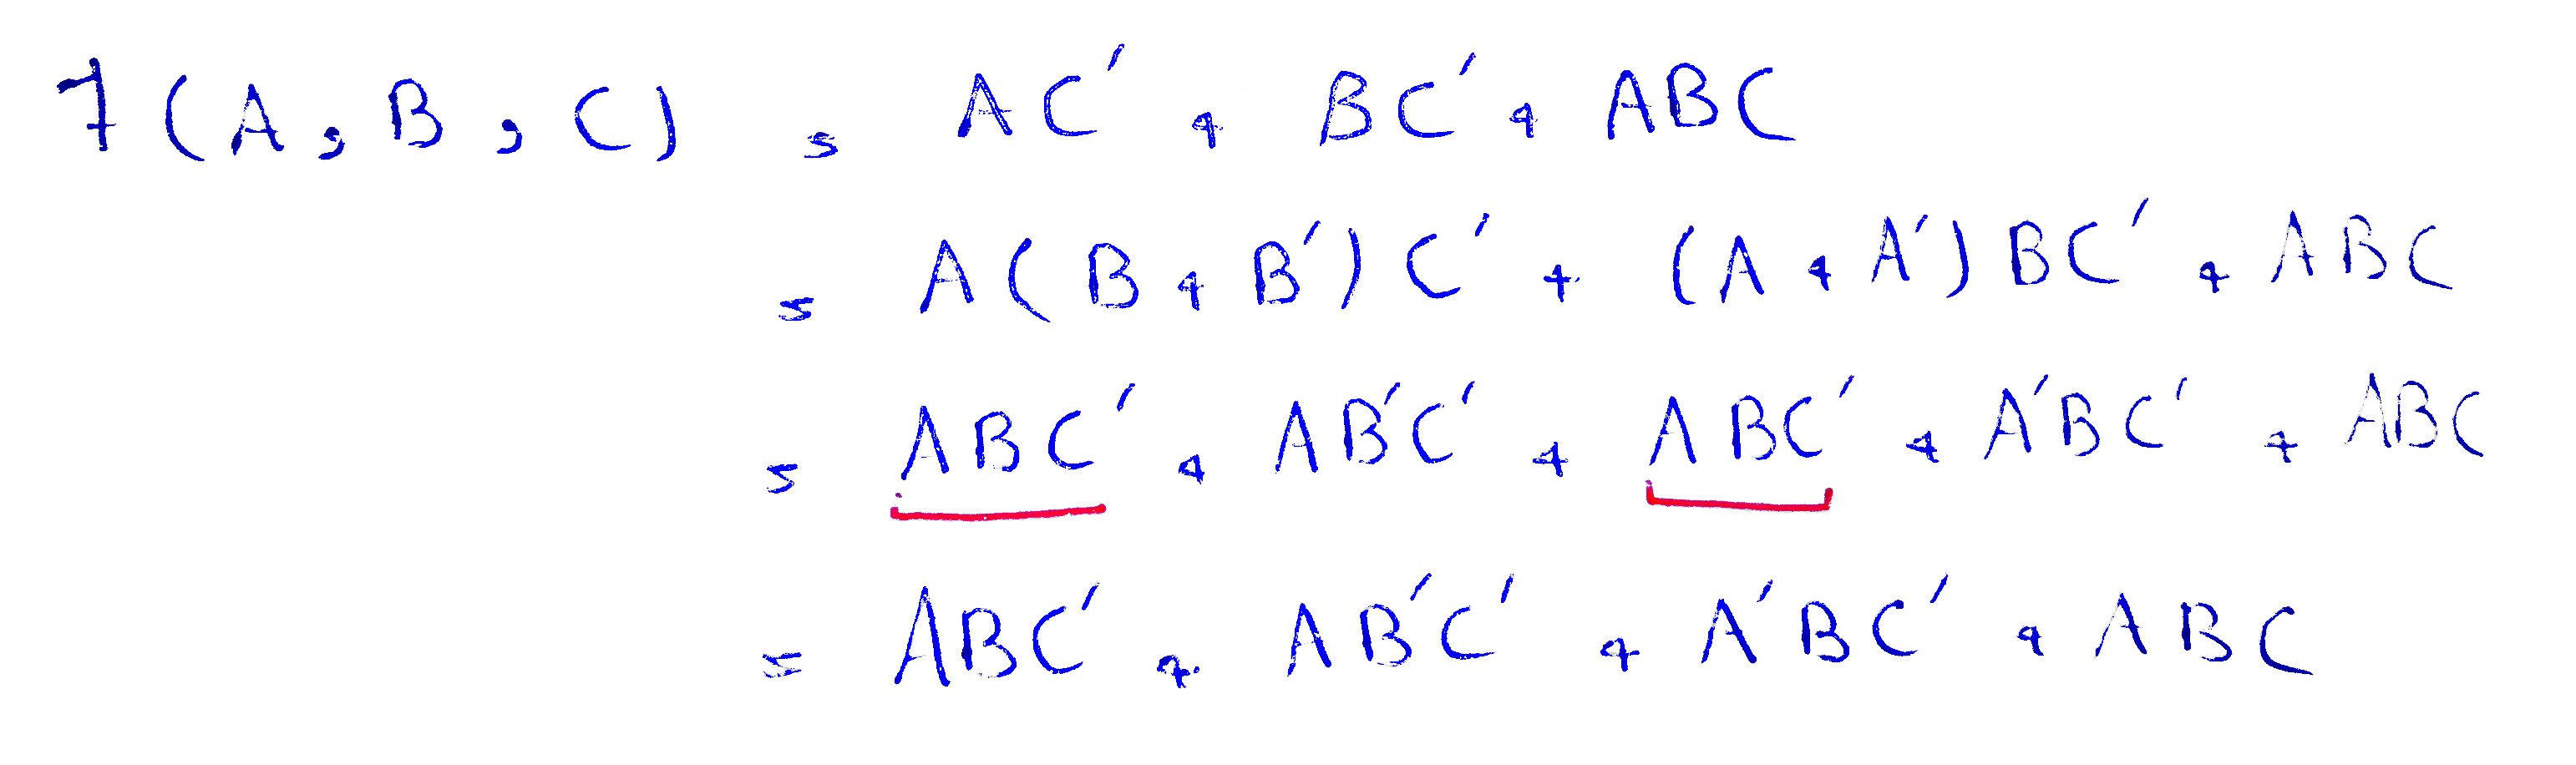 f(A, B, C) = AC' + BC' + ABC
= A(B + B')C' + (A + A')BC' + ABC
= ABC' + AB'C' + ABC' + A'BC' + ABC
= ABC' + AB'C' + A'BC' + ABC